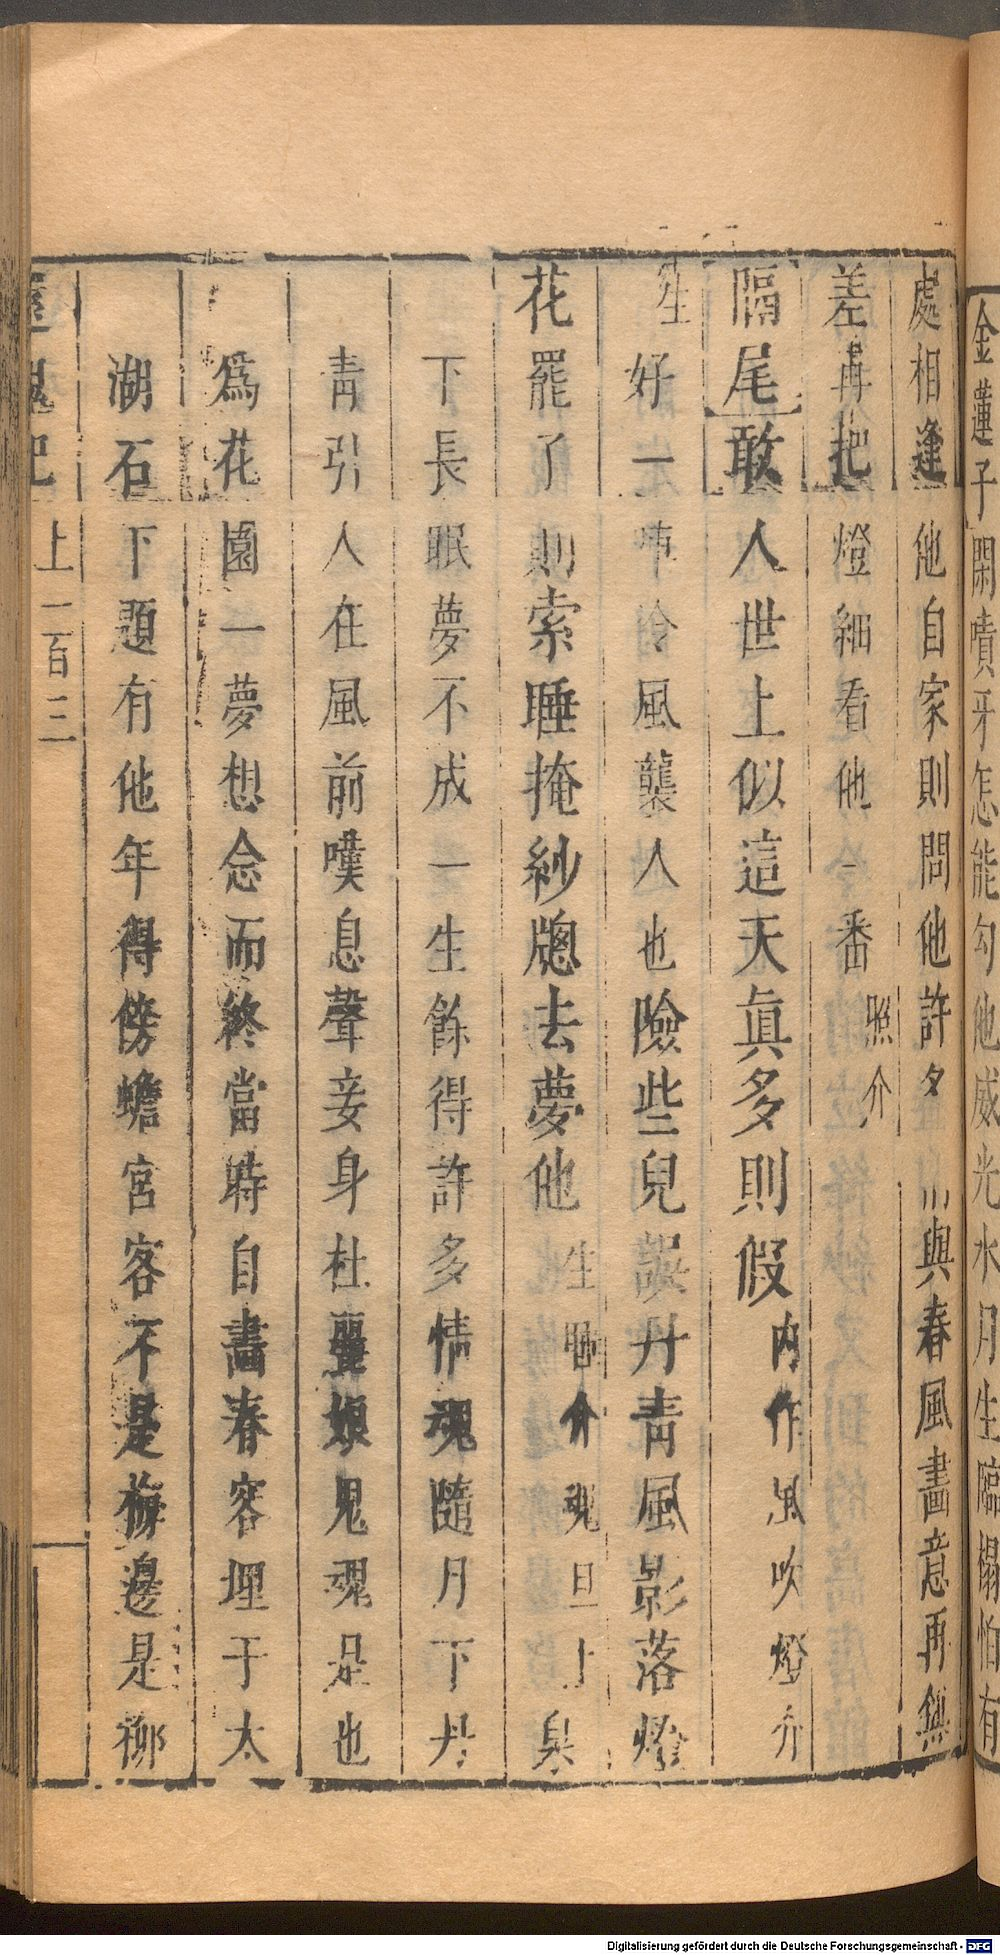 金蓮子閑噴牙怎能勾他威光水月生臨榻怕有
處相逢他自家則問他許多情與春風畫意再無
差再把燈細看他一番照介
隔尾敢人世上似這天眞多則假內作風吹燈介
生好一陣冷風襲人也險些兒誤丹青風影落燈
花罷了則索睡掩紗牕去夢他生睡介魂旦上泉
下長眠夢不成一生餘得許多情魂隨月下丹
青引人在風前嘆息聲妾身杜麗娘鬼魂是也
爲花園一夢想念而終當時自畫春容埋于太
湖石下題有他年得傍蟾宮客不是梅邊是柳
還魂記
上一百三
Digitalisierung gefördert durch die Deutsche Forschungsgemeinschaft - DFG